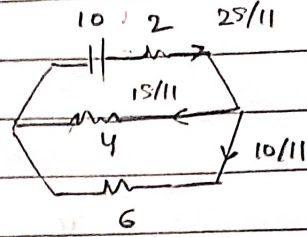 10 2 25/11
15/11
4
10/11
6